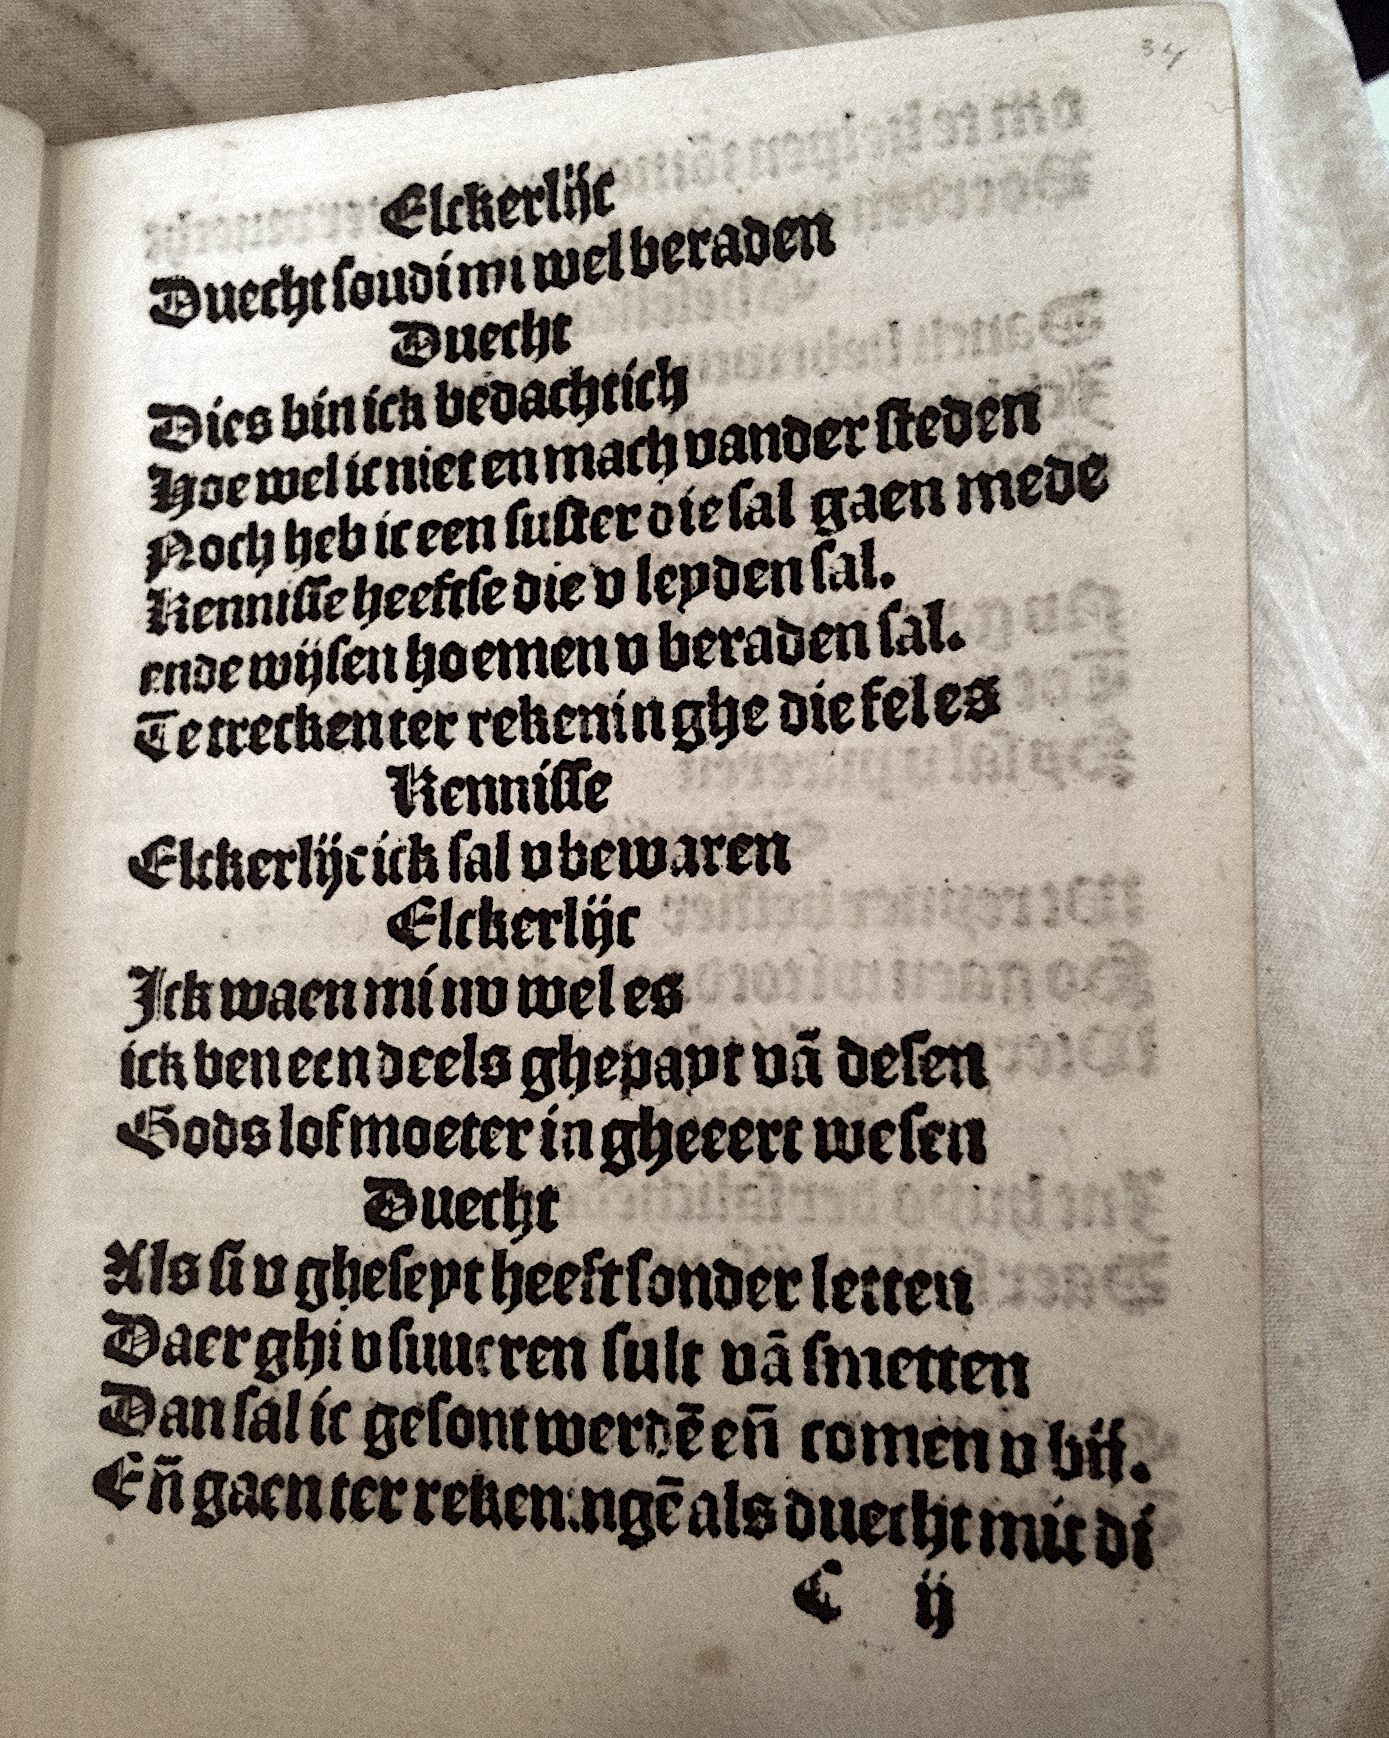 34
Elckerlijc
Duecht soudi mi wel beraden
Duecht
Dies bin ick bedachtich
Hoe wel ic niet en mach vander steden
Noch heb ic een suster die sal gaen mede
Kennisse heeftse die v leyden sal.
ende wijsen hoemen v beraden sal.
Te trecken ter rekeninghe die fel es
Kennisse
Elckerlijc ick sal v bewaren
Elckerlijc
Ick waen mi nv wel es
ick ben een deels ghepayt vā desen
Gods lof moeter in gheeert wesen
Duecht
Als si v gheseyt heeft sonder letten
Daer ghi v suueren sult vā smetten
Dan sal ic gesont werdē eñ comen v bij.
Eñ gaen ter rekeningē als duecht mit di
C ij